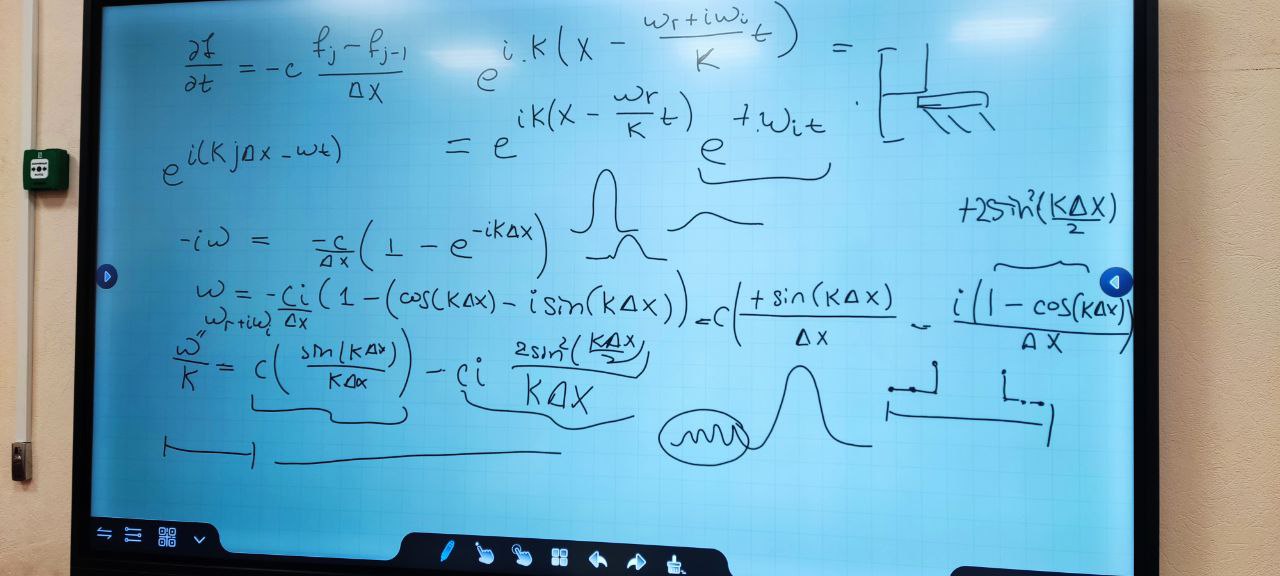 ∂f/∂t = -c (f_j - f_{j-1})/Δx
e^{i.k(x - (ω_r + iω_i)/k t)} =
e^{i(kjΔx - ωt)}
= e^{ik(x - ω_r/k t)} e^{+.ω_i t}
+2sin²(kΔx/2)
-iω = -c/Δx (1 - e^{-ikΔx})
ω = -ci/Δx (1 - (cos(kΔx) - i sin(kΔx))) = c(+sin(kΔx)/Δx - i(1 - cos(kΔx))/Δx)
ω_r + iω_i
ω/k = c(sin(kΔx)/kΔx) - ci 2sin²(kΔx/2)/kΔx